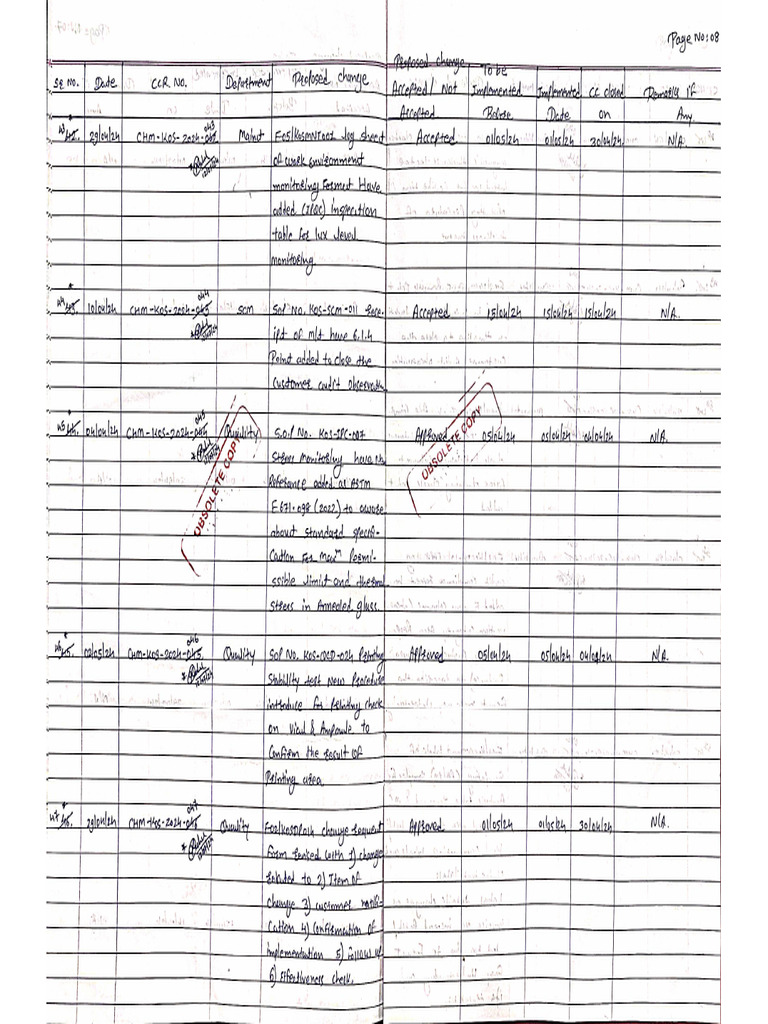 Page No: 08
Sr No. Date CCR No. Department Proposed change Proposed change Accepted/ Not Accepted To be Implemented Before Implemented Date CC closed on Remarks if Any
43 29/04/24 CHM-KOS-2024-043 Maint Accepted 01/05/24 01/05/24 30/04/24 N/A.
log sheet
of work environment
monitoring Format Have
added (IPQC) Inspection
table for lux level
monitoring
44 10/04/24 CHM-KOS-2024-044 SCM SOP No. KOS-SCM-011 Accepted 15/04/24 15/04/24 15/04/24 N/A.
ipt of mlt have 6.1.4
Point added to close the
customer audit observation
45 04/04/24 CHM-KOS-2024-045 Quality S.O.P No. KOS-IPC-007 Approved 05/04/24 05/04/24 04/04/24 N/A.
Stress monitoring have
Reference added as ASTM
(2022) to
about standard specifi-
cation for max^m Permi-
ssible limit and thermal
stress in Annealed glass.
OBSOLETE COPY
OBSOLETE COPY
46 02/05/24 CHM-KOS-2024-046 Quality SOP No. Printing Approved 05/04/24 05/04/24 N/A.
Stability test New Procedure
introduce for Printing check
on Vial & Ampoule to
Confirm the result of
Printing area
47 29/04/24 CHM-KOS-2024-047 Quality change request Approved 01/05/24 01/05/24 30/04/24 N/A.
Form revised with 1) change
related to 2) Item of
change 3) customer notifi-
cation 4) Confirmation of
implementation 5) Follow up
6) Effectiveness check.